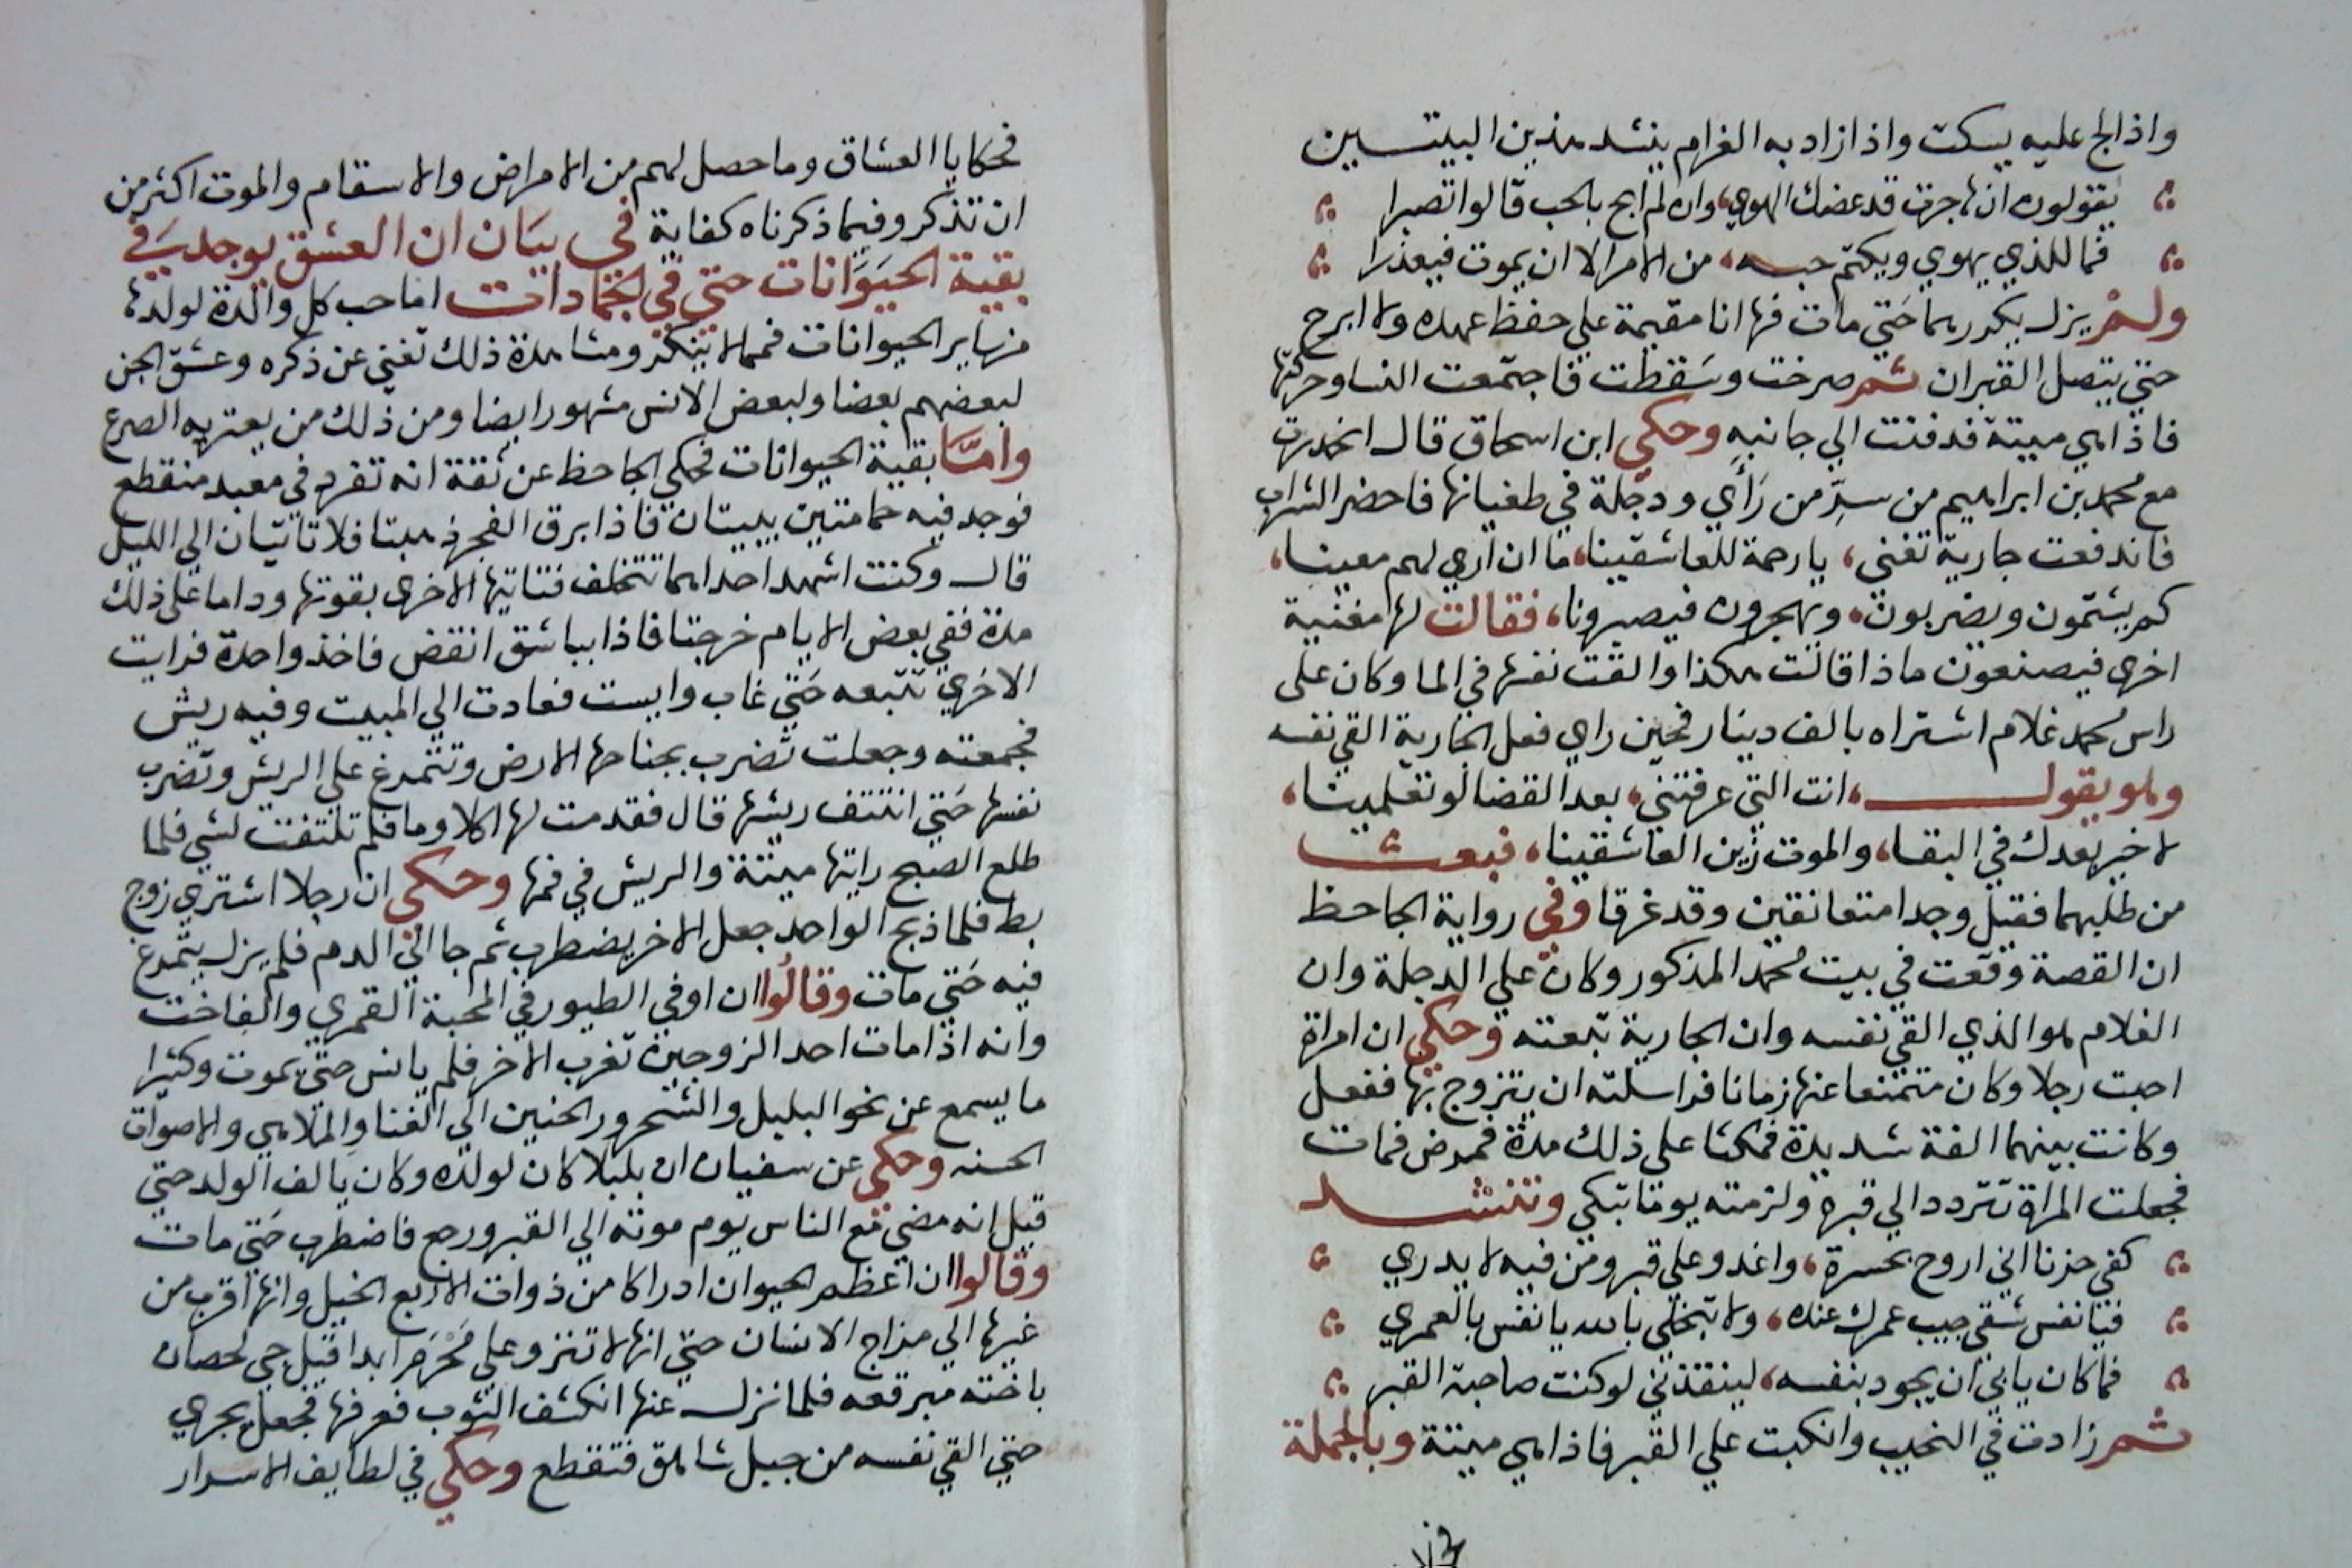 واذا لج عليه يسكت واذا زاد به الغرام ينشد هذين البيتسين
يقولون ان هاجرت قد عضك الهوي، وان لم ابح بالحب قالوا تصبرا
فما للذي يهوي ويكتم حبه، من الامر الا ان يموت فيعذرا
ولم يزل يكررهما حتي مات فها انا مقيمة علي حفظ عهده ولا ابرح
حتي يتصل القبران ثم صرخت وسقطت فاجتمعت النسا وحركتها
فاذا هي ميتة فدفنت الي جانبه وحكي ابن اسحاق قال انحدرت
مع محمد بن ابراهيم من سر من رأي ودجلة في طغيانها فاحضر الشراب
فاندفعت جارية تغني، يا رحمة للعاشقينا، ما ان اري لهم معينا،
كم يشتمون ويضربون، ويهجرون فيصبرونا، فقالت لها مغنية
اخري فيصنعون ماذا قالت هكذا والقت نفسها في الما وكان على
راس محمد غلام اشتراه بالف دينار فحين راي فعل الجارية القي نفسه
وهو يقول، انت التي عرفتني، بعد القضا لو تعلمينا،
لا خير بعدك في البقا، والموت زين العاشقينا، فبعث
من طلبهما فقيل وجدا متعانقين وقد غرقا وفي رواية الجاحظ
ان القصة وقعت في بيت محمد المذكور وكان علي الدجلة وان
الغلام هو الذي القي نفسه وان الجارية تبعته وحكي ان امراة
احبت رجلا وكان متمنعا عنها زمانا فراسلته ان يتزوج بها ففعل
وكانت بينهما الفة شديدة فمكثا على ذلك مدة فمرض فمات
فجعلت المراة تتردد الي قبره ولزمته يوما تبكي وتنشد
كفي حزنا اني اروح بحسرة، واغدو علي قبر ومن فيه لا يدري
فيا نفس شقي جيب عمرك عنده، ولا تبخلي بالله يا نفس بالعمري
فما كان يابي ان يجود بنفسه، لينقذني لو كنت صاحبة القبر
ثم زادت في النحيب وانكبت علي القبر فاذا هي ميتة وبالجملة
فحكايا العشاق وما حصل لهم من الامراض والاسقام والموت اكثر من
ان تذكر وفيما ذكرناه كفاية في بيان ان العشق يوجد في
بقية الحيوانات حتي في الجمادات اما حب كل والدة لولدها
من ساير الحيوانات فمما لا ينكر ومشاهدة ذلك تغني عن ذكره وعشق الجن
لبعضهم بعضا ولبعض الانس مشهور ايضا ومن ذلك من يعتريه الصرع
واما بقية الحيوانات فحكي الجاحظ عن ثقة انه تفرد في معبد منقطع
فوجد فيه حمامتين يبيتان فاذا برق الفجر ذهبتا فلا تاتيان الي الليل
قال وكنت اشهد احداهما تتخلف فتاتيها الاخري بقوتها وداما على ذلك
مدة ففي بعض الايام خرجتا فاذا بباشق انقض فاخذ واحدة فرايت
الاخري تتبعه حتي غاب وايست فعادت الي المبيت وفيه ريش
فجمعته وجعلت تضرب بجناحها الارض وتتمرغ علي الريش وتضرب
نفسها حتي انتتف ريشها قال فقدمت لها اكلا وما فلم تلتفت لشي فلما
طلع الصبح رايتها ميتة والريش في فمها وحكي ان رجلا اشتري زوج
بط فلما ذبح الواحد جعل الاخر يضطرب ثم جا الي الدم فلم يزل يتمرغ
فيه حتي مات وقالوا ان اوفي الطيور في المحبة القمري والفاخت
وانه اذا مات احد الزوجين تغرب الاخر فلم يانس حتي يموت وكثيرا
ما يسمع عن نحو البلبل والشحرور الحنين الي الغنا والملاهي والاصوات
الحسنه وحكي عن سفيان ان بلبلا كان لولده وكان يالف الولد حتي
قيل انه مضي مع الناس يوم موته الي القبر ورجع فاضطرب حتي مات
وقالوا ان اعظم الحيوان ادراكا من ذوات الاربع الخيل وانها اقرب من
غيرها الي مزاج الانسان حتي انها لا تنزو علي محرم ابدا قيل جي لحصان
باخته مبرقعه فلما نزل عنها انكشف الثوب فعرفها فجعل يجري
حتي القي نفسه من جبل شاهق فتقطع وحكي في لطايف الاسرار